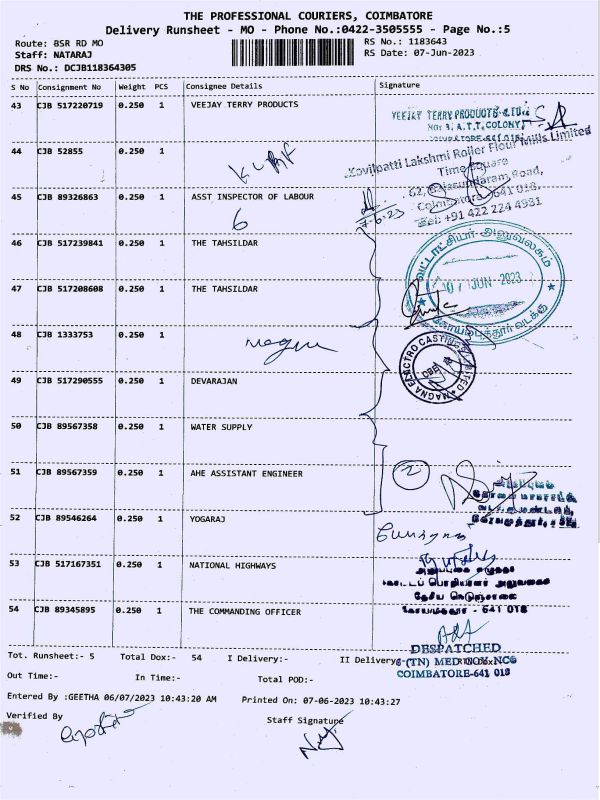 THE PROFESSIONAL COURIERS, COIMBATORE
Delivery Runsheet - MO - Phone No.:0422-3505555 - Page No.:5
Route: BSR RD MO RS No.: 1183643
Staff: NATARAJ RS Date: 07-Jun-2023
DRS No.: DCJB118364305
S No Consignment No Weight PCS Consignee Details Signature
43 CJB 517220719 0.250 1 VEEJAY TERRY PRODUCTS
VEEJAY TERRY PRODUCTS LTD.,
No: 9, A.T.T. COLONY,
COIMBATORE-641 018.
44 CJB 52855 0.250 1
Kovilpatti Lakshmi Roller Flour Mills Limited
Time Square
62, Balasundaram Road,
Coimbatore - 641 018.
Tel: +91 422 224 4981
45 CJB 89326863 0.250 1 ASST INSPECTOR OF LABOUR
6
7-6-23
46 CJB 517239841 0.250 1 THE TAHSILDAR
வட்டாட்சியர் அலுவலகம்
07 JUN 2023
கோயம்புத்தூர் வடக்கு
47 CJB 517208608 0.250 1 THE TAHSILDAR
48 CJB 1333753 0.250 1
magna
MAGNA ELECTRO CASTINGS LIMITED
CBE 18
49 CJB 517290555 0.250 1 DEVARAJAN
50 CJB 89567358 0.250 1 WATER SUPPLY
51 CJB 89567359 0.250 1 AHE ASSISTANT ENGINEER
2
52 CJB 89546264 0.250 1 YOGARAJ
53 CJB 517167351 0.250 1 NATIONAL HIGHWAYS
கோட்டப் பொறியாளர் அலுவலகம்
தேசிய நெடுஞ்சாலை
கோயமுத்தூர் - 641 018
54 CJB 89345895 0.250 1 THE COMMANDING OFFICER
DESPATCHED
(TN) MED COY NCC
COIMBATORE-641 018
Tot. Runsheet:- 5 Total Dox:- 54 I Delivery:- II Delivery:-
Out Time:- In Time:- Total POD:-
Entered By :GEETHA 06/07/2023 10:43:20 AM Printed On: 07-06-2023 10:43:27
Verified By Staff Signature